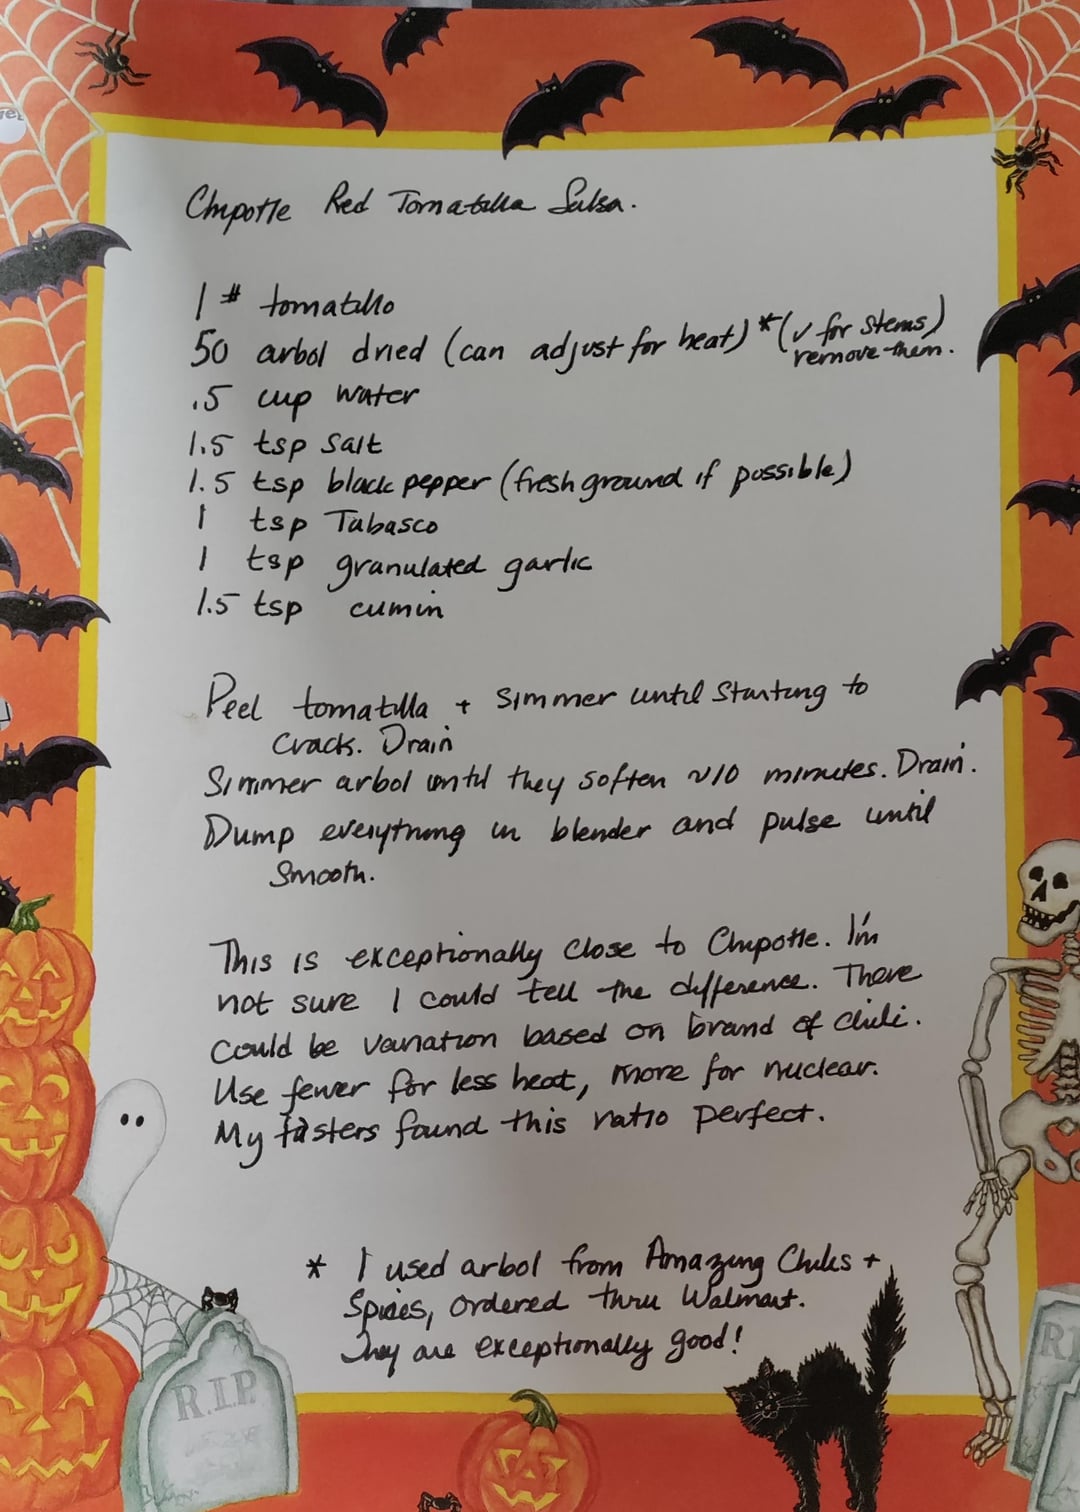 Chipotle Red Tomatilla Salsa.
1 # tomatillo
50 arbol dried (can adjust for heat) * (✓ for stems)
remove them.
.5 cup water
1.5 tsp salt
1.5 tsp black pepper (fresh ground if possible)
1 tsp Tabasco
1 tsp granulated garlic
1.5 tsp cumin
Peel tomatilla + simmer until starting to
crack. Drain
Simmer arbol until they soften ~10 minutes. Drain.
Dump everything in blender and pulse until
smooth.
This is exceptionally close to Chipotle. I'm
not sure I could tell the difference. There
could be variation based on brand of chili.
Use fewer for less heat, more for nuclear.
My tasters found this ratio perfect.
* I used arbol from Amazing Chiles +
Spices, ordered thru Walmart.
They are exceptionally good!
R.I.P.